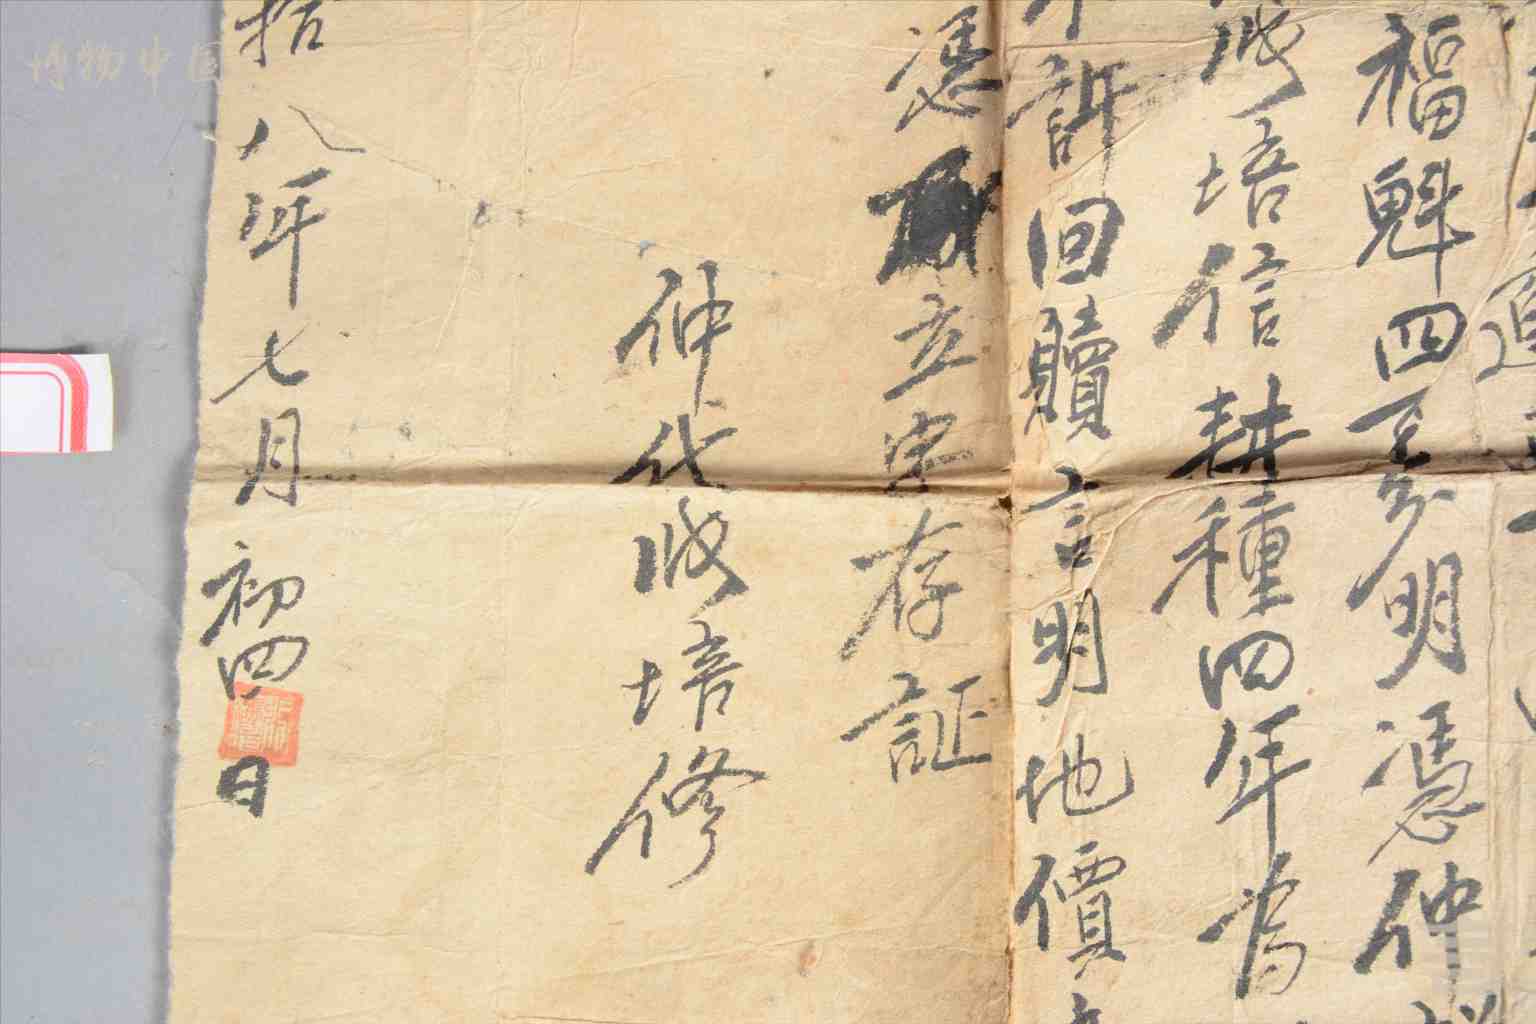 福魁四至分明憑仲
成培信耕種四年為
不許回贖言明地價
憑立字存証
仲代成培修
拾八年七月初四日
博物中国